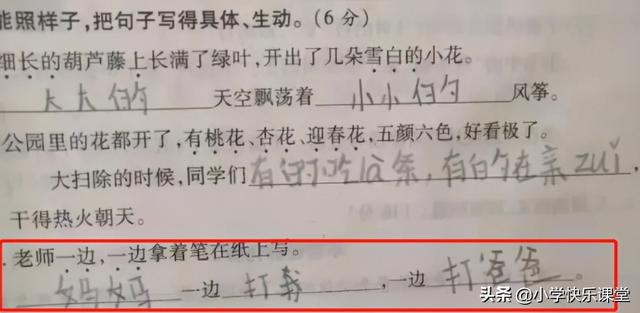 能照样子,把句子写得具体、生动。(6 分)
细长的葫芦藤上长满了绿叶,开出了几朵雪白的小花。
大大的天空飘荡着小小的风筝。
公园里的花都开了,有桃花、杏花、迎春花,五颜六色,好看极了。
大扫除的时候,同学们有的小吃谷条,有的在亲zuǐ,
干得热火朝天。
.老师一边,一边拿着笔在纸上写。
妈妈一边打我,一边打爸爸。
头条@小学快乐课堂